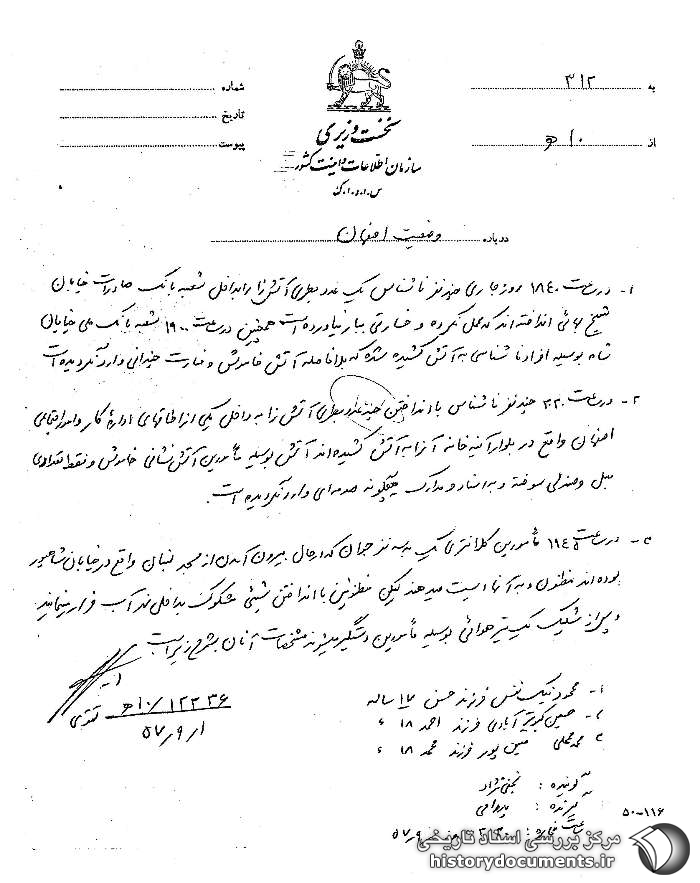 به ۳۱۲
از ۱۰ ه‍
شماره
تاریخ
پیوست
نخست وزیری
سازمان اطلاعات و امنیت کشور
س.ا.و.ا.ک
درباره وضعیت اصفهان
۱- در ساعت ۱۸۴۰ روز جاری چند نفر ناشناس یک عدد بطری آتش زا را بداخل شعبه بانک صادرات خیابان
شیخ بهائی انداخته اند که عمل نکرده و خسارتی ببار نیاورده است همچنین در ساعت ۱۹۰۰ شعبه بانک ملی خیابان
شاه بوسیله افراد ناشناسی به آتش کشیده شده که بلافاصله آتش خاموش و خسارت چندانی وارد نگردیده است
۲- در ساعت ۲۲۰۰ چند نفر ناشناس با انداختن چند عدد بطری آتش زا به داخل یکی از اطاقهای اداره کار و امور اجتماعی
اصفهان واقع در بلوار آئینه خانه آنرا به آتش کشیده اند آتش بوسیله مأمورین آتش نشانی خاموش و فقط تعدادی
مبل و صندلی سوخته و به اسناد و مدارک هیچگونه صدمه ای وارد نگردیده است.
۳- در ساعت ۱۹۴۵ مأمورین کلانتری یک به سه نفر جوان که در حال بیرون آمدن از مسجد لنبان واقع در خیابان شاهپور
بوده اند مظنون و به آنها ایست میدهند لیکن مظنونین با انداختن شیئی مشکوک بداخل نهر آب فرار مینمایند
و پس از شلیک یک تیر هوائی بوسیله مأمورین دستگیر میشوند مشخصات آنان بشرح زیر است
۱- محمود نیک نفس فرزند حسن ۱۷ ساله
۲- حسین کبوتر آبادی فرزند احمد ۱۸ ء
۳- محمد علی معین پور فرزند محمد ۱۸ ء
۱۰ ه‍/۱۲۳۳۶
تقوی
۵۷/۹/۱
گوینده : نجفی نژاد
گیرنده :
ساعت
۵۰-۱۱۶
مرکز بررسی اسناد تاریخی
historydocuments.ir